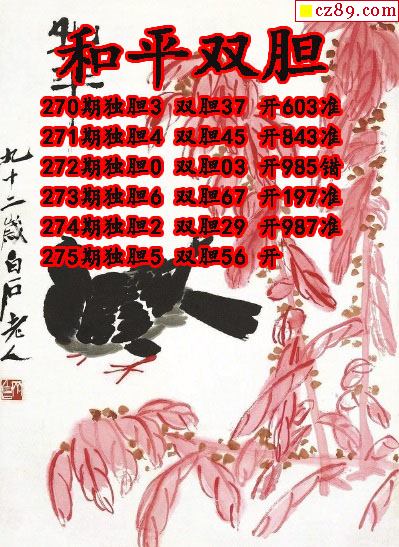 cz89.com
和平双胆
270期独胆3 双胆37 开603准
271期独胆4 双胆45 开843准
272期独胆0 双胆03 开985错
273期独胆6 双胆67 开197准
274期独胆2 双胆29 开987准
275期独胆5 双胆56 开
九十二岁白石老人